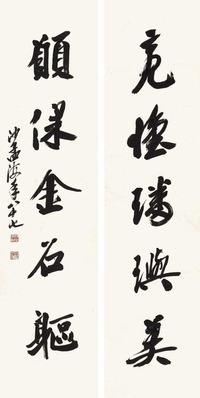 亮懷璠璵美
願保金石軀
沙孟海年八十七